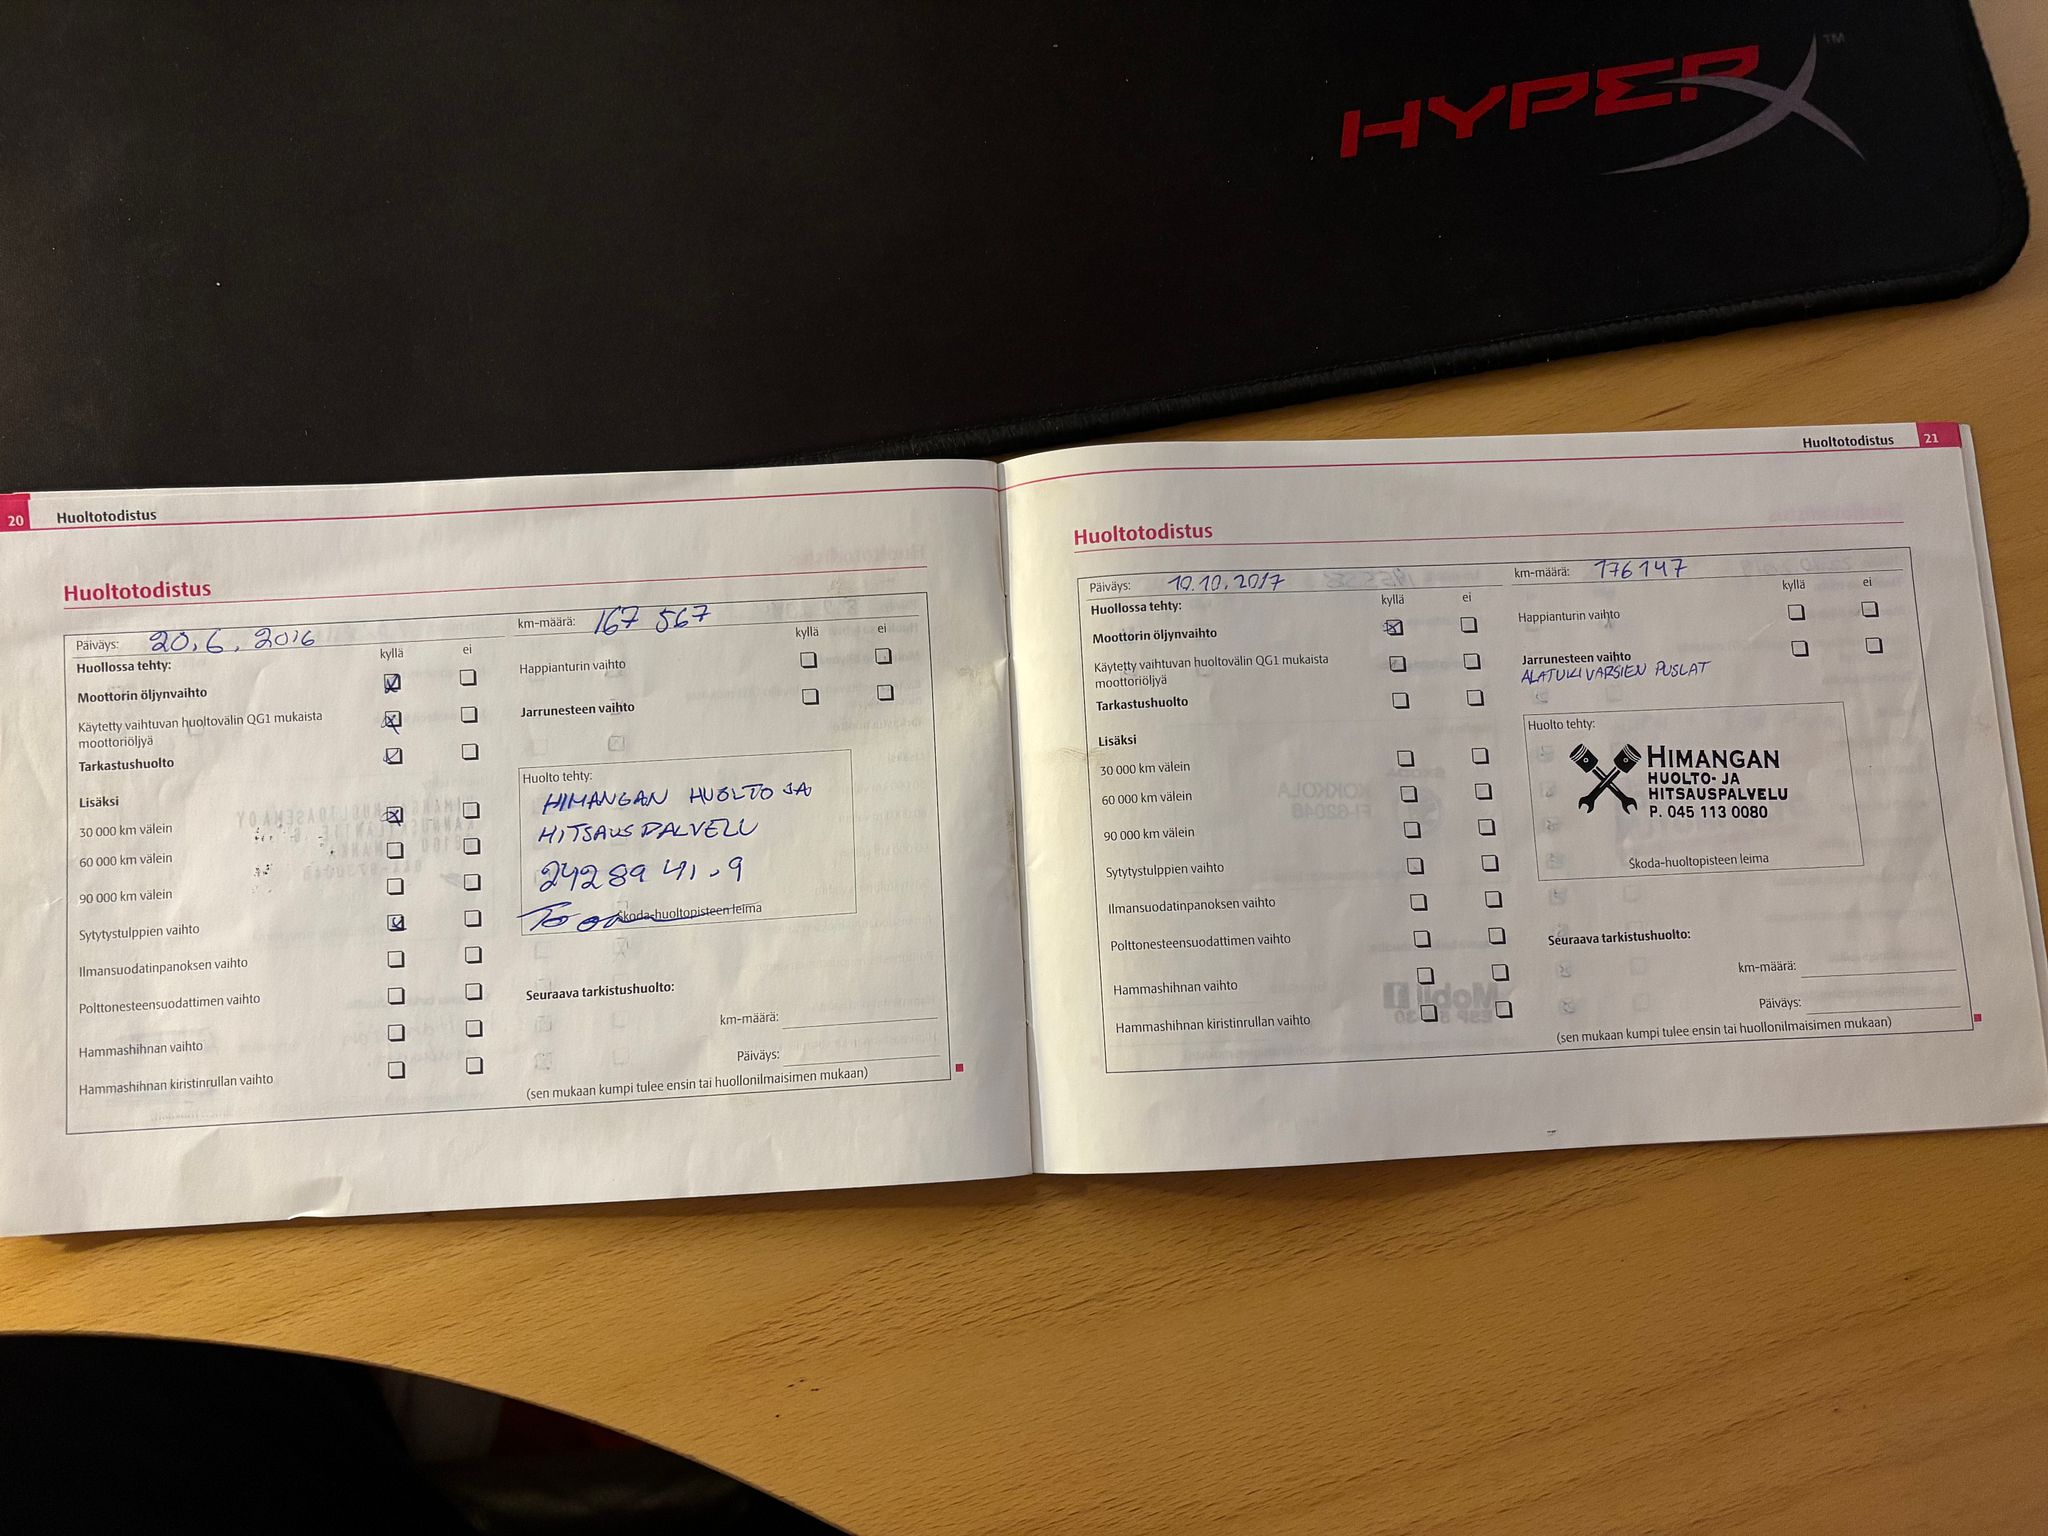 HYPERX™
20 Huoltotodistus
Huoltotodistus
Päiväys: 20.6.2016 km-määrä: 167 567
Huollossa tehty: kyllä ei
Moottorin öljynvaihto
Käytetty vaihtuvan huoltovälin QG1 mukaista
moottoriöljyä
Tarkastushuolto
Lisäksi
30 000 km välein
60 000 km välein
90 000 km välein
Sytytystulppien vaihto
Ilmansuodatinpanoksen vaihto
Polttonesteensuodattimen vaihto
Hammashihnan vaihto
Hammashihnan kiristinrullan vaihto
kyllä ei
Happianturin vaihto
Jarrunesteen vaihto
Huolto tehty:
HIMANGAN HUOLTO JA
HITSAUSPALVELU
2428941-9
Škoda-huoltopisteen leima
Seuraava tarkistushuolto:
km-määrä:
Päiväys:
(sen mukaan kumpi tulee ensin tai huollonilmaisimen mukaan)
Huoltotodistus 21
Huoltotodistus
Päiväys: 10.10.2017 km-määrä: 176147
Huollossa tehty: kyllä ei
Moottorin öljynvaihto
Käytetty vaihtuvan huoltovälin QG1 mukaista
moottoriöljyä
Tarkastushuolto
Lisäksi
30 000 km välein
60 000 km välein
90 000 km välein
Sytytystulppien vaihto
Ilmansuodatinpanoksen vaihto
Polttonesteensuodattimen vaihto
Hammashihnan vaihto
Hammashihnan kiristinrullan vaihto
kyllä ei
Happianturin vaihto
Jarrunesteen vaihto
ALATUKIVARSIEN PUSLAT
Huolto tehty:
HIMANGAN
HUOLTO- JA
HITSAUSPALVELU
P. 045 113 0080
Škoda-huoltopisteen leima
Seuraava tarkistushuolto:
km-määrä:
Päiväys:
(sen mukaan kumpi tulee ensin tai huollonilmaisimen mukaan)